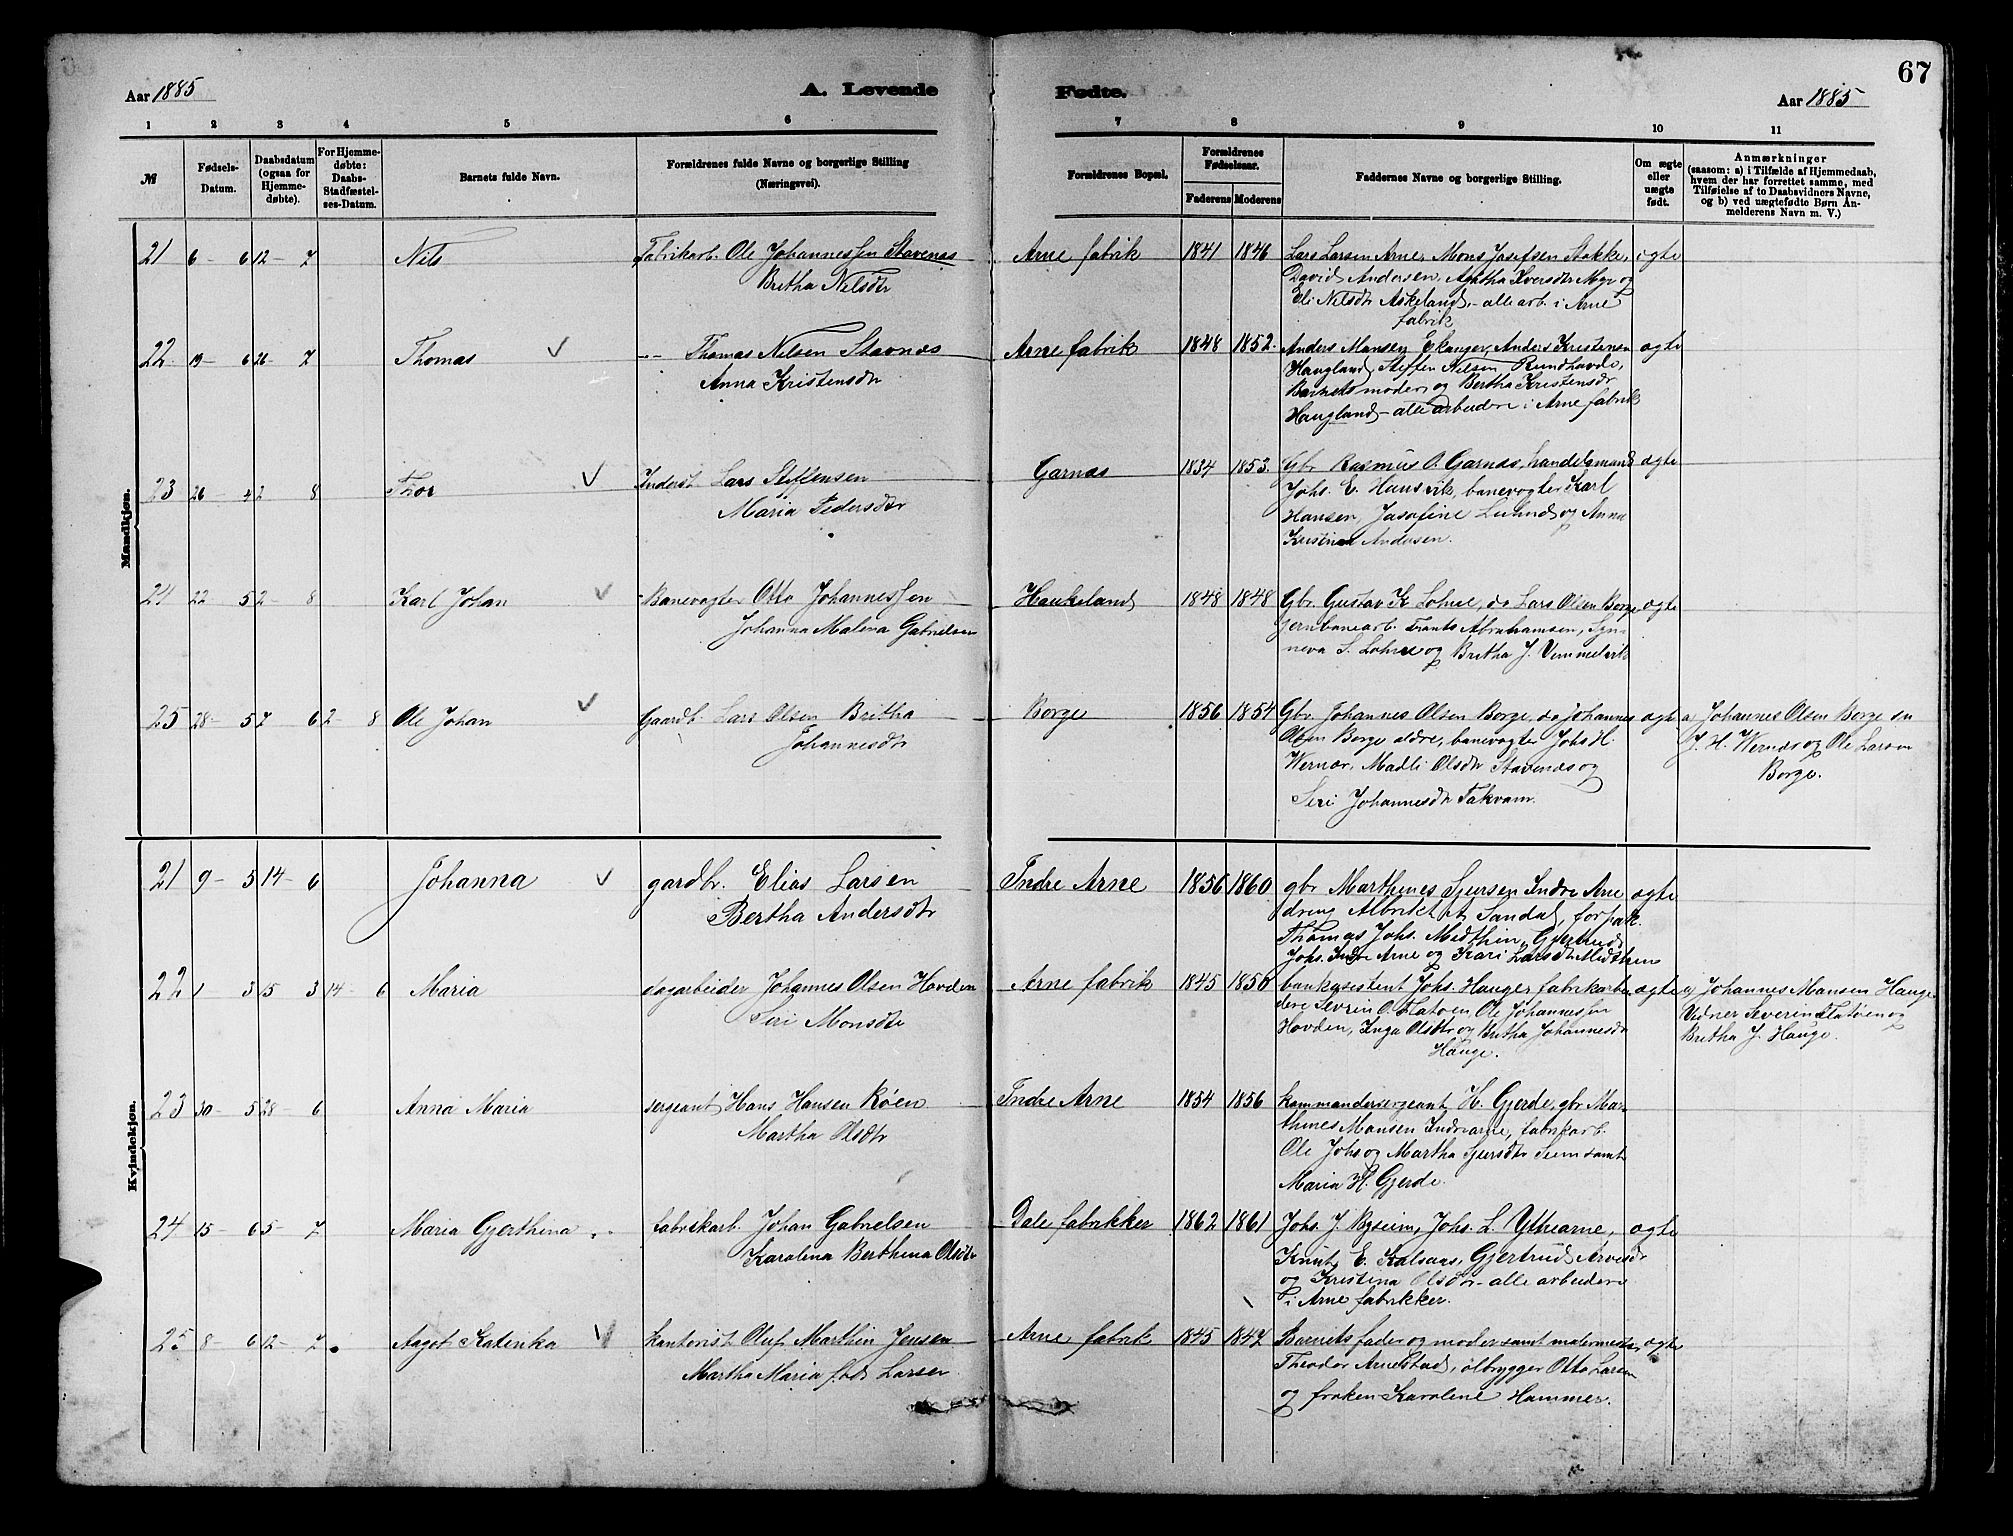 67
Aar 1885
A. Levende
Fødte.
Aar 1885
1 2 3 4 5 6 7 8 9 10 11
№
Fødsels-
Datum.
Daabsdatum
(ogsaa for
Hjemme-
døbte).
For Hjemme-
døbte:
Daabs-
Stadfæstel-
ses-Datum.
Barnets fulde Navn.
Forældrenes fulde Navne og borgerlige Stilling
(Næringsvei).
Forældrenes Bopæl.
Forældrenes
Fødselsaar.
Faderens Moderens
Faddernes Navne og borgerlige Stilling.
Om ægte
eller
uægte
født.
Anmærkninger
(saasom: a) i Tilfælde af Hjemmedaab,
hvem der har forrettet samme, med
Tilføielse af to Daabsvidners Navne,
og b) ved uægtefødte Børn An-
melderens Navn m. V.)
Mandkjøn.
21 6 - 6 12 - 7 Nils Fabrikarb. Ole Johannessen Stavenæs Arne fabrik 1841 1846 Lars Larsen Arne, Mons Josefsen Stokke, ægte
Britha Nilsdtr David Andersen, Agatha Iversdtr Mye og
Eli Nilsdtr Askeland - alle arb. i Arne
fabrik
22 19 - 6 26 - 7 Thomas -"- Thomas Nilsen Stavnæs Arne fabrik 1848 1852. Anders Monsen Ekanger, Anders Kristensen ægte
Anna Kristensdtr Haugland, Steffen Nilsen Rundhovde,
Barnets moder og Bertha Kristensdtr
Haugland - alle arbeidere i Arne fabrik
23 26 - 4 2 - 8 Thor Inderst Lars Steffensen Garnæs 1834 1853. Gbr Rasmus O. Garnæs, handelsmand ægte
Maria Pedersdtr Johs. E. Hansvik, banevogter Karl
Hansen, Josefine Lund og Anna
Kristine Andersen.
24 22 - 5 2 - 8 Karl Johan Banevogter Otto Johannessen Haukeland 1848 1848 Gbr. Gustav K. Lohne, do Lars Olsen Borge, ægte
Johanna Malena Gabrielsen jernbanearb. Frants Abrahamsen, Syn-
neva S. Lohne og Britha J.
25 28 - 5 7 - 6 2 - 8 Ole Johan Gaardb. Lars Olsen Britha Borge 1856 1854 Gbr. Johannes Olsen Borge, do Johannes ægte a) Johannes Olsen Borge
Johannesdtr Olsen Borge ældre, banevogter Johs H. J. H. Wernær og Ole Larsen
Wernær, Madli Olsdtr Stavenæs og Borge.
Siri Johannesdtr Takvam.
Kvindekjøn.
21 9 - 5 14 - 6 Johanna gardbr. Elias Larsen Indre Arne 1856 1860 gbr Marthines Sjursen Indre Arne ægte
Bertha Andersdtr dreng Albrikt A Sandal, forpak.
Thomas Johs. Midthun, Gjertrud
Johs. Indre Arne og Kari Larsdtr Midthun
22 1 - 3 15 - 3 14 - 6 Maria dagarbeider Johannes Olsen Hovden Arne fabrik 1845 1850 bankasistent Johs. Hauger, fabrikarbei- ægte a) Johannes Mansen Hauge
Siri Monsdtr dere Sevrin O. Flatøen, Ole Johannessen Vidner Severin Flatøen og
Hovden, Inga Olsdtr og Britha Johannesdtr Britha J. Hauge.
Hauge.
23 30 - 5 28 - 6 Anna Maria sergeant Hans Hansen Røen Indre Arne 1854 1856 kommandersergeant H. Gjerde, gbr Mar-
Martha Olsdtr thines Mansen Indrearne, fabrikarb.
Ole Johs og Martha Sjursdtr Seim samt
Maria H. Gjerde.
24 15 - 6 5 - 7 Maria Gjerthina fabrikarb. Johan Gabrielsen Dale fabrikker 1862 1861 Johs. J. Røseim, Johs. L. Yttrearne, ægte
Karolina Berthina Olsdtr Knut E. Kalsaas, Gjertrud Arvesdtr
og Kristina Olsdtr - alle arbeidere
i Arne fabrikker.
25 8 - 6 12 - 7 Aagot Katinka kontorist Oluf Marthin Jensen Arne fabrik 1845 1847 Barnets fader og moder samt malermester ægte
Martha Maria født Larsen Theodor Arnestad, ølbrygger Otto Larsen
og frøken Karoline Hammer.